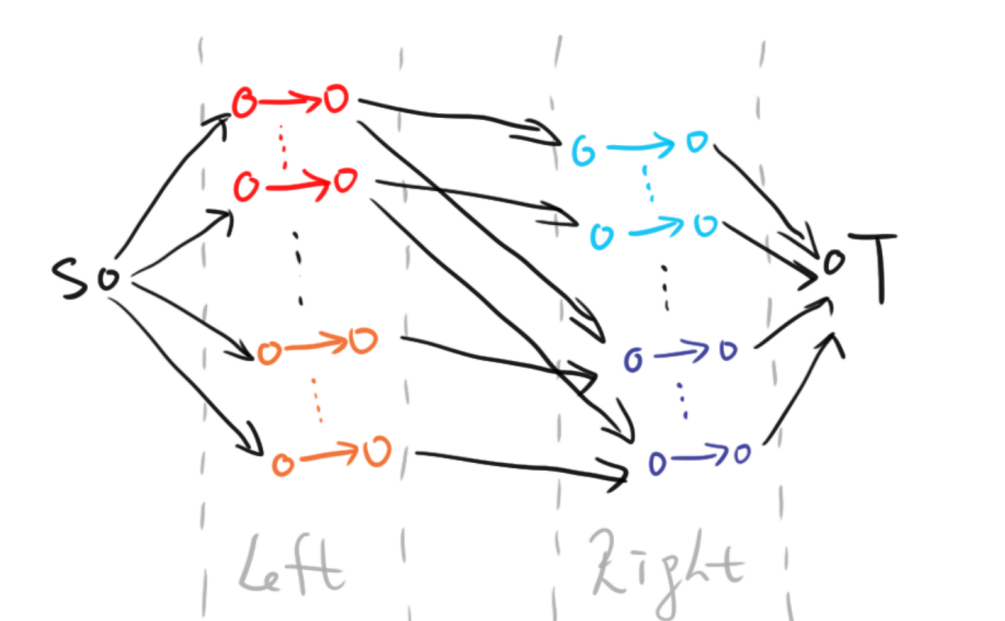 S
T
Left
Right